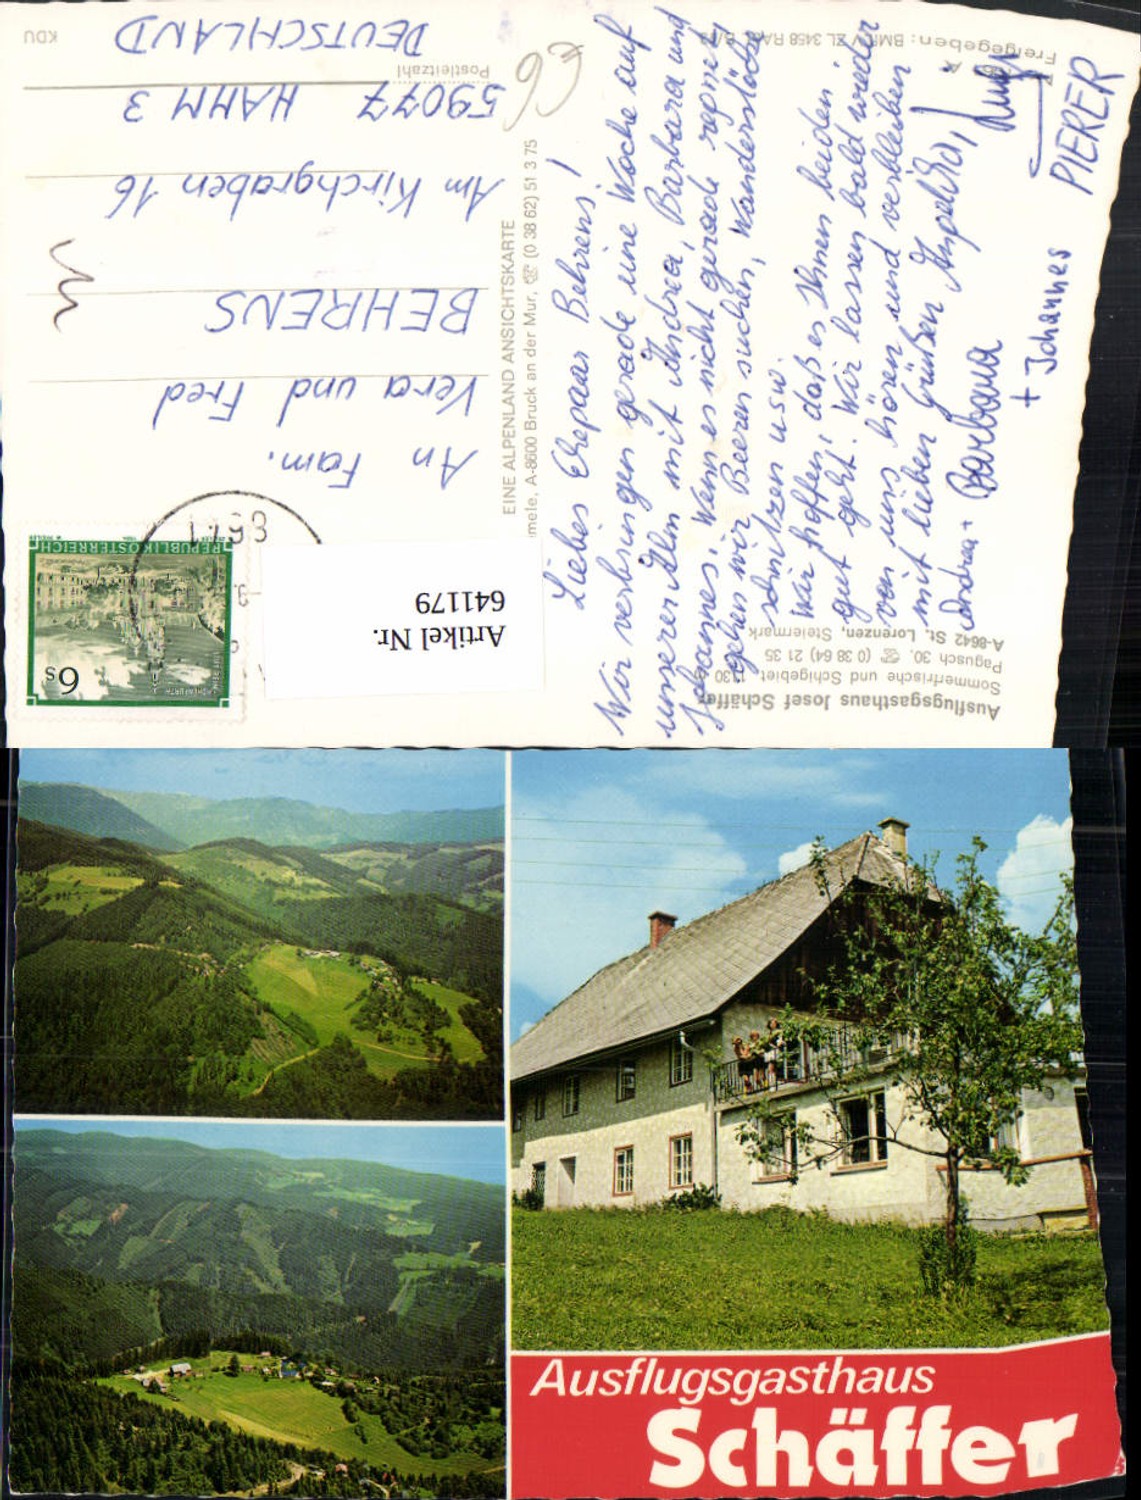 Liebes Ehepaar Behrens!
Wir verbringen gerade eine Woche auf
unserer Alm mit Andrea, Barbara und
Johannes. Wenn es nicht gerade regnet
gehen wir Beeren suchen, Wanderstöcke
schnitzen usw.
Wir hoffen, daß es Ihnen beiden
gut geht. Wir lassen bald wieder
von uns hören und verbleiben
mit lieben Grüßen
Andrea + Barbara
+ Johannes
PIERER
An Fam.
Vera und Fred
BEHRENS
Am Kirchgraben 16
59077 HAMM 3
Postleitzahl
DEUTSCHLAND
KDU
EINE ALPENLAND ANSICHTSKARTE
A-8600 Bruck an der Mur, ☏ (0 38 62) 51 3 75
Ausflugsgasthaus Josef Schäffer
Sommerfrische und Schigebiet, 1130
Pagusch 30, ☏ (0 38 64) 21 35
A-8642 St. Lorenzen, Steiermark
Freigegeben:
REPUBLIK ÖSTERREICH
6s
8641
Artikel Nr.
641179
Ausflugsgasthaus
Schäffer